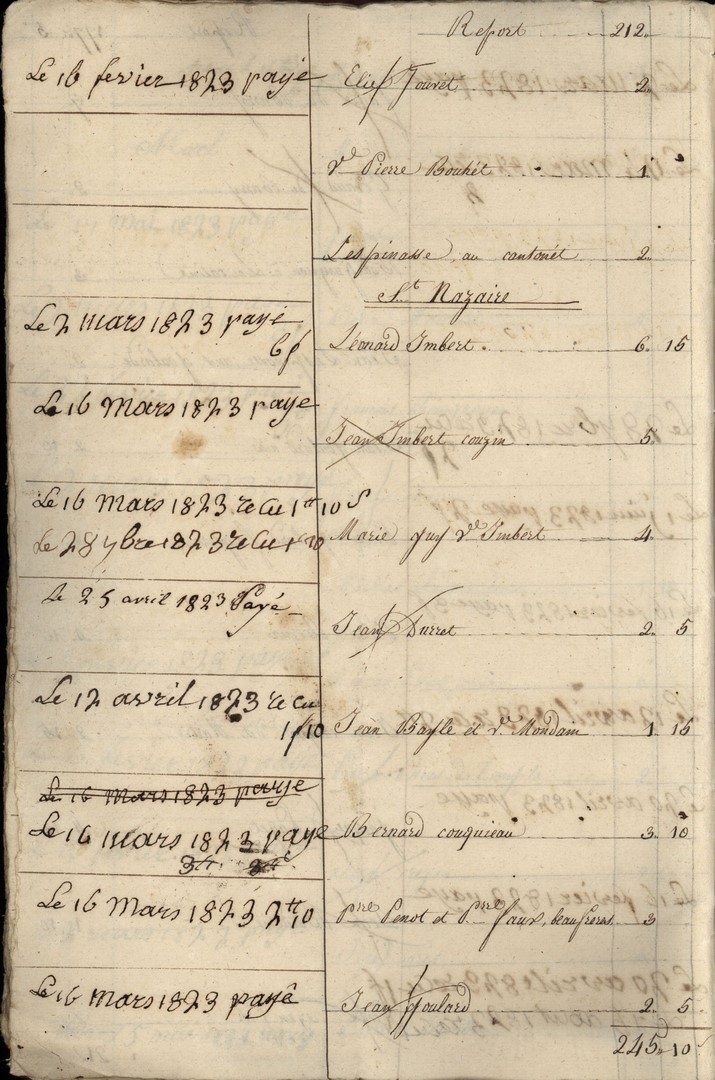 Report ..... 212.
Le 16 fevier 1823 payé Elie Jouret ..... 2.
Ve Pierre Bouhét ..... 1
Lespinasse, au cantonét ..... 2.
St Nazaire
Le 2 mars 1823 payé
6f Léonard Imbert ..... 6. 15
Le 16 Mars 1823 paye
Jean Imbert couzin ..... 5
Le 16 Mars 1823 recu 1tt 10 s
Le 28 ybre 1823 recu 1tt 10 Marie guy ve Imbert ..... 4
Le 25 avril 1823 Payé
Jean Durret ..... 2. 5
Le 12 avril 1823 recu
1f 10 Jean Bayle et ve Mondain ..... 1. 15
Le 16 Mars 1823 payé
Le 16 mars 1823 paye Bernard couquieau ..... 3. 10
3tt
Le 16 Mars 1823 2tt 10 Prre Penot et Prre faux, beaufreres ..... 3
Le 16 mars 1823 payé Jean Goulard ..... 2. 5
245. 10